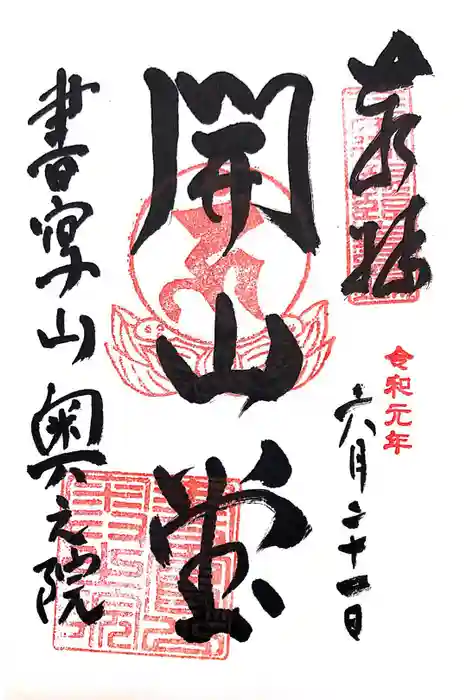 奉拝
令和元年
六月二十一日
開山堂
書寫山 奥之院